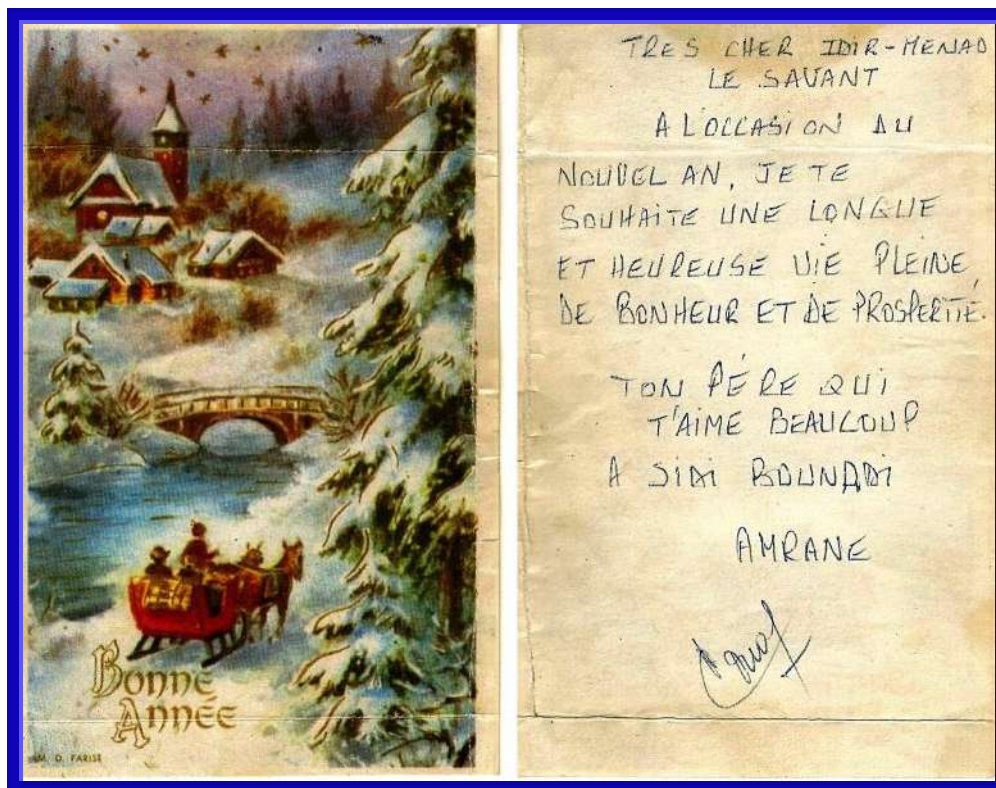 BONNE
ANNÉE
M. D. PARISE
TRES CHER IDIR-MENAD
LE SAVANT
A L'OCCASION DU
NOUVEL AN, JE TE
SOUHAITE UNE LONGUE
ET HEUREUSE VIE PLEINE
DE BONHEUR ET DE PROSPERITÉ.
TON PÉRE QUI
T'AIME BEAUCOUP
A SIDI BOUNDDI
AMRANE